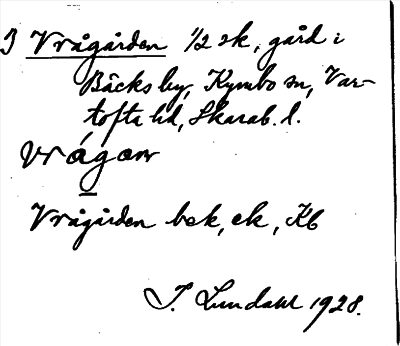 I Vrågården 1/2 sk, gård i
Bäcks by, Kymbo sn, Var-
tofta hd, Skarab. l.
vrágan
Vrågården bek, ek, Kb
I. Lundahl 1928.